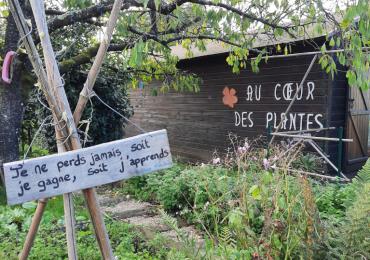 AU CŒUR
DES PLANTES
Je ne perds jamais, soit
je gagne, soit j'apprends